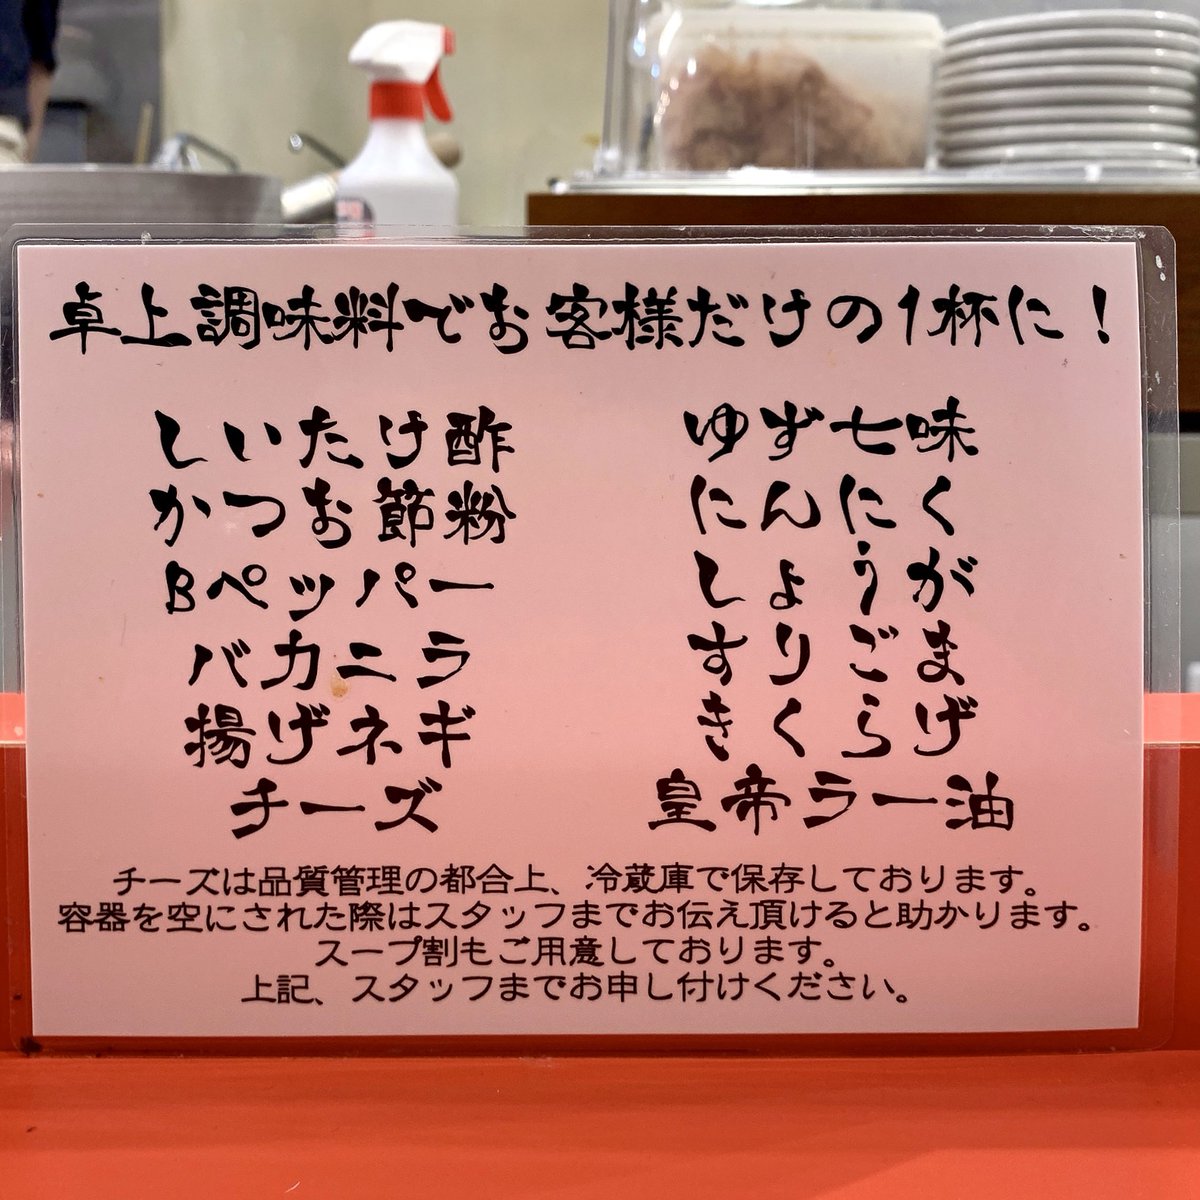 卓上調味料でお客様だけの1杯に！
しいたけ酢
かつお節粉
Bペッパー
バカニラ
揚げネギ
チーズ
ゆず七味
にんにく
しょうが
すりごま
きくらげ
皇帝ラー油
チーズは品質管理の都合上、冷蔵庫で保存しております。
容器を空にされた際はスタッフまでお伝え頂けると助かります。
スープ割もご用意しております。
上記、スタッフまでお申し付けください。